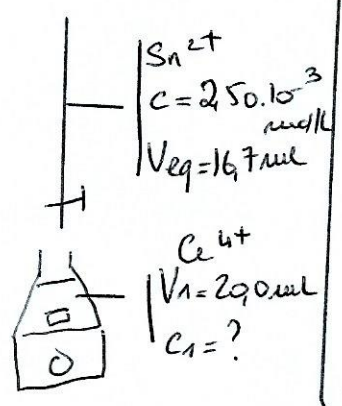 Sn²⁺
C = 2,50.10⁻³
mol/L
Veq=16,7 mL
Ce⁴⁺
V1=20,0 mL
C1=?